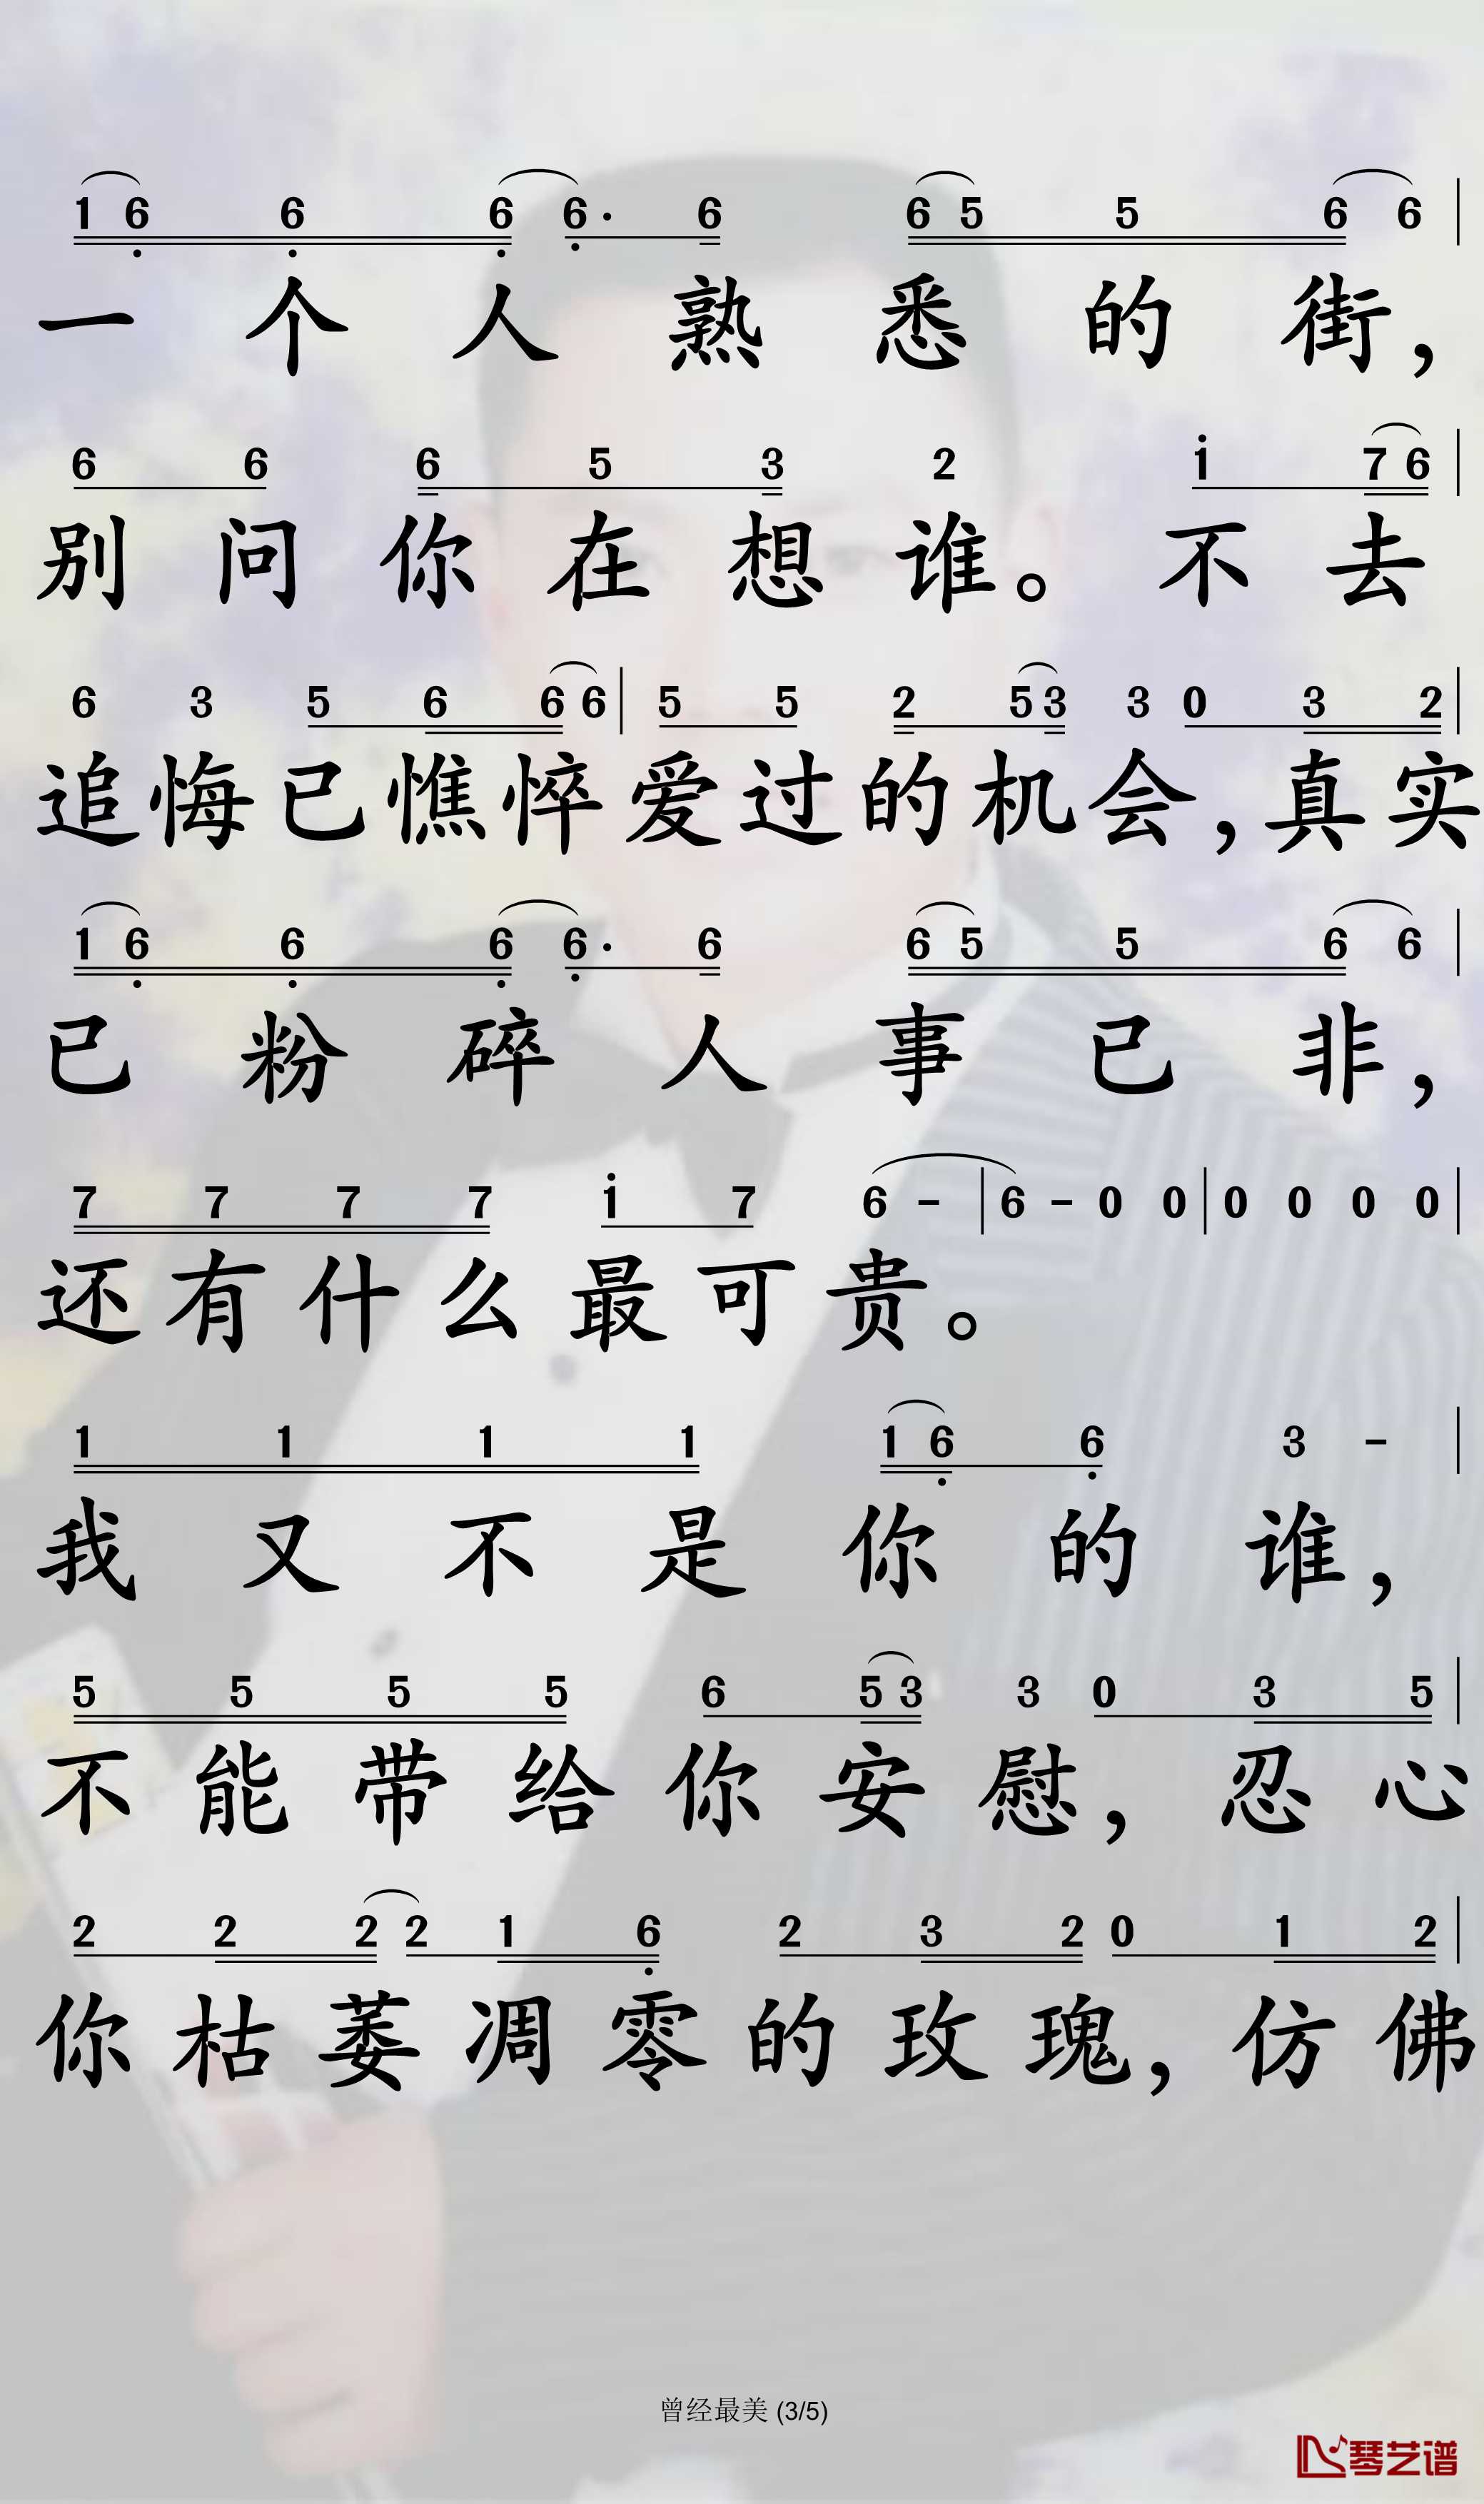 1 6 6 6 6· 6 6 5 5 6 6
一个人熟悉的街，
6 6 6 5 3 2 1 7 6
别问你在想谁。不去
6 3 5 6 6 6 | 5 5 2 5 3 3 0 3 2 |
追悔已憔悴爱过的机会，真实
1 6 6 6 6· 6 6 5 5 6 6 |
已粉碎人事已非，
7 7 7 7 1 7 6 - | 6 - 0 0 | 0 0 0 0 |
还有什么最可贵。
1 1 1 1 1 6 6 3 - |
我又不是你的谁，
5 5 5 5 6 5 3 3 0 3 5 |
不能带给你安慰，忍心
2 2 2 2 1 6 2 3 2 0 1 2 |
你枯萎凋零的玫瑰，仿佛
曾经最美 (3/5)
琴艺谱